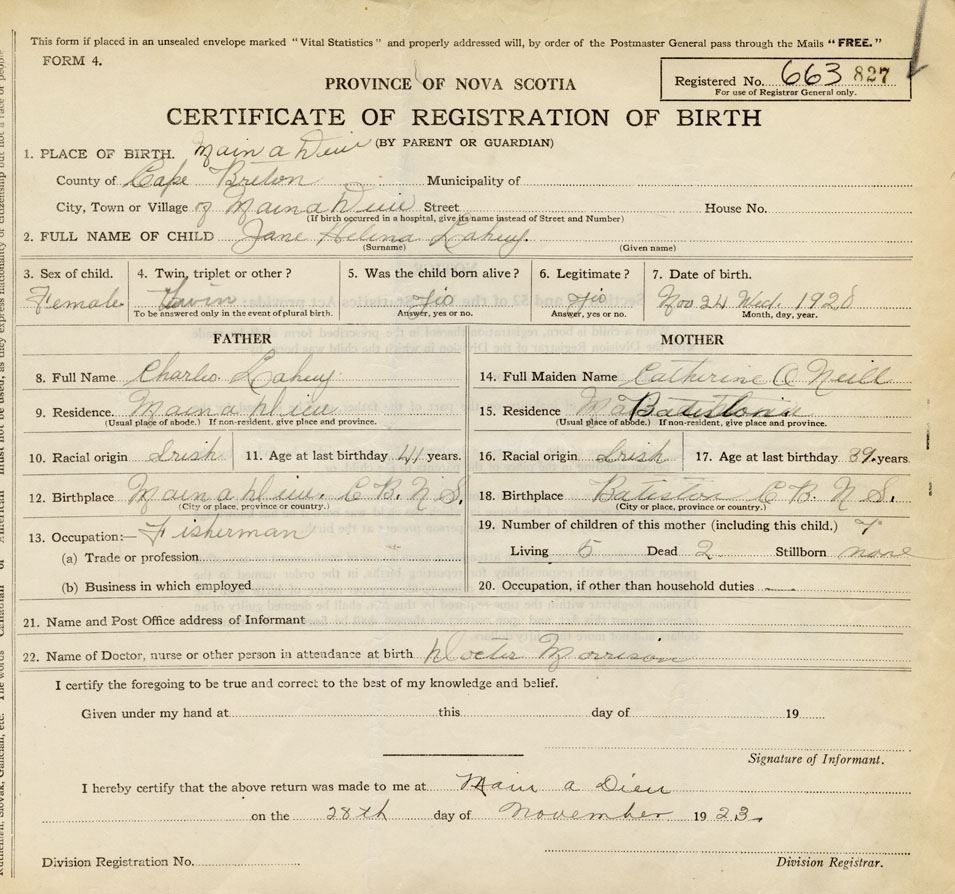 This form if placed in an unsealed envelope marked "Vital Statistics" and properly addressed will, by order of the Postmaster General pass through the Mails "FREE."
FORM 4.
Registered No. 663 827
For use of Registrar General only.
PROVINCE OF NOVA SCOTIA
CERTIFICATE OF REGISTRATION OF BIRTH
(BY PARENT OR GUARDIAN)
1. PLACE OF BIRTH. Main a Dieu
County of Cape Breton Municipality of
City, Town or Village of Main a Dieu Street House No.
(If birth occurred in a hospital, give its name instead of Street and Number)
2. FULL NAME OF CHILD Jane Helena Lahey.
(Surname) (Given name)
3. Sex of child. 4. Twin, triplet or other? 5. Was the child born alive? 6. Legitimate? 7. Date of birth.
Female Twin Nov 24 Wed.
To be answered only in the event of plural birth. Answer, yes or no. Answer, yes or no. Month, day, year.
FATHER MOTHER
8. Full Name Lahey 14. Full Maiden Name Catherine O Neill
9. Residence. Main a Dieu 15. Residence
(Usual place of abode.) If non-resident, give place and province. (Usual place of abode.) If non-resident, give place and province.
10. Racial origin Irish 11. Age at last birthday 41 years. 16. Racial origin Irish 17. Age at last birthday 39 years.
12. Birthplace Main a Dieu. C. B. N. S. 18. Birthplace C. B. N. S.
(City or place, province or country.) (City or place, province or country.)
13. Occupation:— Fisherman 19. Number of children of this mother (including this child.) 7
(a) Trade or profession Living 5 Dead 2 Stillborn none
(b) Business in which employed 20. Occupation, if other than household duties
21. Name and Post Office address of Informant
22. Name of Doctor, nurse or other person in attendance at birth Morrison
I certify the foregoing to be true and correct to the best of my knowledge and belief.
Given under my hand at this day of 19
Signature of Informant.
I hereby certify that the above return was made to me at Main a Dieu
on the 28th day of November 1923.
Division Registration No. Division Registrar.